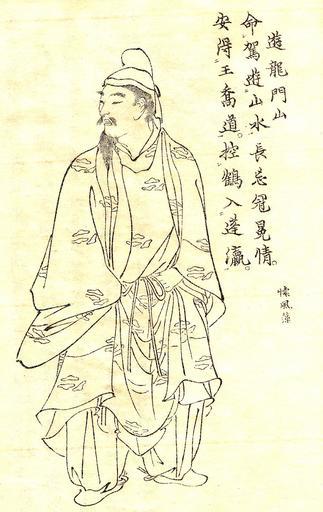 遊龍門山
命駕遊山水長忘冠冕情。
安得王喬道。控鶴入蓬瀛。
懐風藻